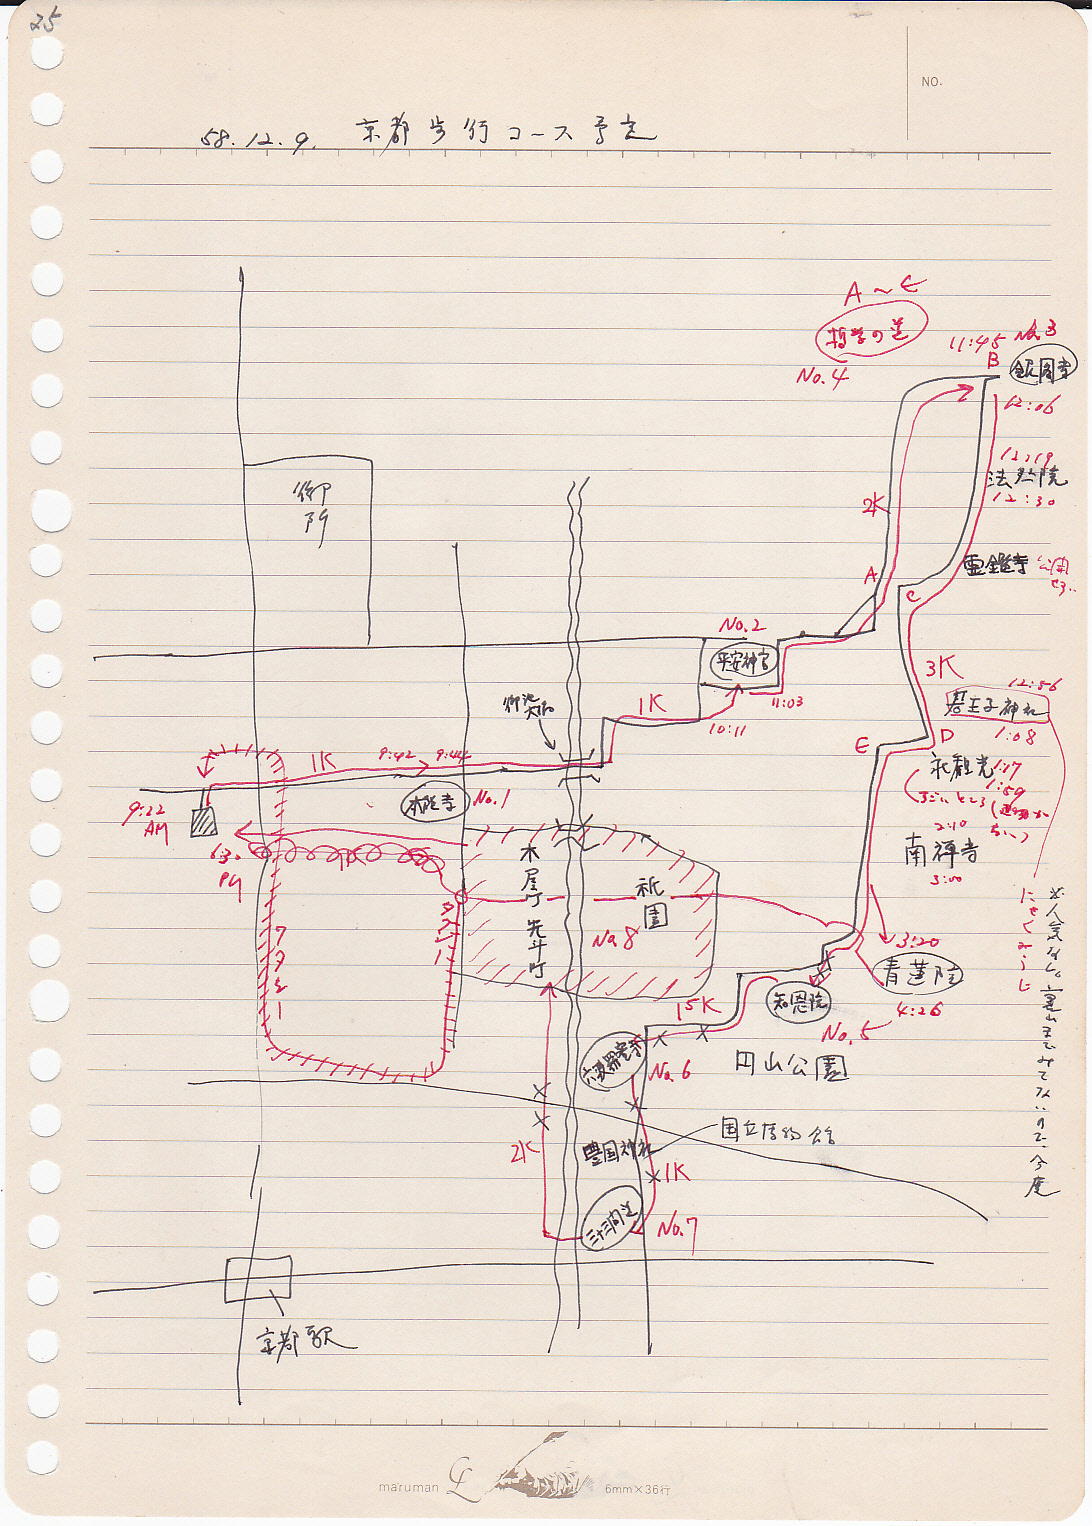 25
NO.
58.12.9. 京都歩行コース予定
A〜E
哲学の道
No.4
11:45 No.3
B 銀閣寺
12:06
12:19
法然院
12:30
御所
2K
A
霊鑑寺
C
No.2
平安神宮
3K
12:56
若王子神社
1:08
御池大橋
1K
11:03
10:11
E D
永観堂 1:17
1:59
すごいところ
1K
9:42 9:44
9:22 AM
本能寺 No.1
2:10
南禅寺
3:00
6:30 PM
木屋町
先斗町
祇園
No.8
3:20
青蓮院
4:26
知恩院
No.5
1.5K
六波羅蜜寺
No.6
円山公園
国立博物館
豊国神社
2K
1K
三十三間堂
No.7
京都駅
にゃくおうじ
maruman
6mm×36行